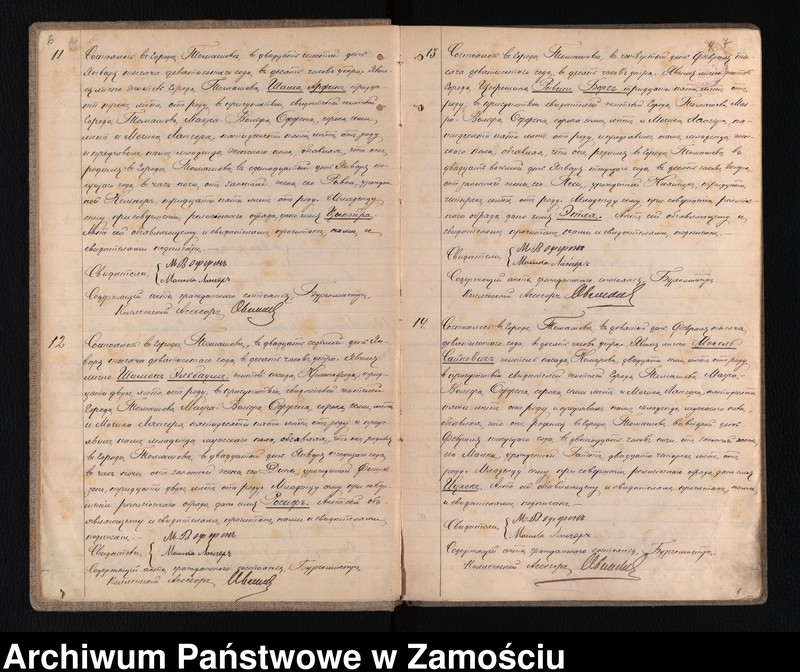 6
11
Состоялось въ городѣ Томашовѣ, въ двадцать шестой день
Января тысяча девятисотаго года, въ десять часовъ утра. Явил
ся лично житель города Томашова, Шаша
лѣтъ отъ роду, въ присутствіи свидѣтелей жителей
города Томашова, Майра-Вольфа Оффена, сорока семи
лѣтъ и Мошка Лангера, пятидесяти пяти лѣтъ отъ роду
и предъявилъ намъ младенца женскаго пола, объявляя, что онъ
родился въ городѣ Томашовѣ, въ одинадцатый день Января те
кущаго года, въ часъ ночи, отъ законной жены его
тридцати пяти лѣтъ отъ роду. Младенцу
сему при совершеніи религіознаго обряда, дано имя
Актъ сей объявляющему и свидѣтелямъ прочитанъ, нами и
свидѣтелями подписанъ. —
Свидѣтели { М. Воффенъ
Мошка Лангеръ
Содержащій акты гражданскаго состоянія, Бургомистръ,
Коллежскій Ассесоръ
12
Состоялось въ городѣ Томашовѣ, въ двадцать седьмой день Ян
варя тысяча девятисотаго года, въ десять часовъ утра. Явился
лично Шимонъ житель посада трид
цати двухъ лѣтъ отъ роду, въ присутствіи свидѣтелей жителей
города Томашова Майра-Вольфа Оффена, сорока семи лѣтъ
и Мошка Лангера пятидесяти пяти лѣтъ отъ роду и предъ
явилъ намъ младенца мужескаго пола, объявляя, что онъ родился
въ городѣ Томашовѣ, въ двадцатый день Января текущаго года,
въ часъ ночи, отъ законной жены его Дины, урожденной
тридцати двухъ лѣтъ отъ роду. Младенцу сему при совер
шеніи религіознаго обряда дано имя Іосифъ. Актъ сей объ
являющему и свидѣтелямъ прочитанъ, нами и свидѣтелями
подписанъ. —
Свидѣтели { М. Воффенъ
Мошка Лангеръ
Содержащій акты гражданскаго состоянія, Бургомистръ
Коллежскій Ассесоръ
7
13
Состоялось въ городѣ Томашовѣ, въ четвертый день Февраля ты
сяча девятисотаго года, въ десять часовъ утра. Явился лично житель
города тридцати пяти лѣтъ отъ
роду, въ присутствіи свидѣтелей жителей города Томашова Май
ра-Вольфа Оффена, сорока семи лѣтъ и Мошка Лангера, пя
тидесяти пяти лѣтъ отъ роду, и предъявилъ намъ младенца жен
скаго пола, объявляя, что онъ, родился въ городѣ Томашовѣ, въ
двадцать восьмой день Января текущаго года, въ десять часовъ вечера,
отъ законной жены его урожденной тридцати
четырехъ лѣтъ отъ роду. Младенцу сему, при совершеніи религіоз
наго обряда дано имя Этля. Актъ сей объявляющему и,
свидѣтелямъ прочитанъ, нами и свидѣтелями, подписанъ. —
Свидѣтели { М. Воффенъ
Мошка Лангеръ
Содержащій акты гражданскаго состоянія, Бургомистръ
Коллежскій Ассесоръ
14
Состоялось въ городѣ Томашовѣ, въ девятый день Февраля тысяча
девятисотаго года, въ десять часовъ утра. Явился лично
житель посада Комарова, двадцати лѣтъ отъ роду,
въ присутствіи свидѣтелей жителей города Томашова Майра-
Вольфа Оффена, сорока семи лѣтъ и Мошка Лангера, пятидесяти
пяти лѣтъ отъ роду и предъявилъ намъ младенца мужескаго пола,
объявляя, что онъ родился въ городѣ Томашовѣ, во второй день
Февраля текущаго года, въ двѣнадцать часовъ ночи отъ законной жены,
его урожденной двадцати четырехъ лѣтъ отъ
роду. Младенцу сему при совершеніи религіознаго обряда, дано имя
Актъ сей объявляющему и свидѣтелямъ прочитанъ, нами
и свидѣтелями подписанъ. —
Свидѣтели { М. Воффенъ
Мошка Лангеръ
Содержащій акты гражданскаго состоянія, Бургомистръ
Коллежскій Ассесоръ
Archiwum Państwowe w Zamościu